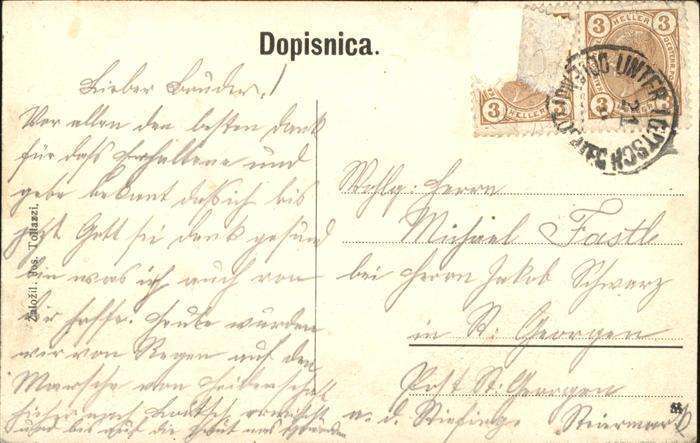 Dopisnica.
3 HELLER 3
3 HELLER 3
DOLENJI LOGATEC
UNTER LOITSCH
21
Lieber Bruder!
Vor allen den besten Dank
für das Erhaltene und
gebe bekant daß ich bis
jetzt Gott sei dank gesund
bin was ich auch von
dir hoffe. Heute wurden
wir von Regen auf den
Marsche von
bis auf die Haut nas
Wohlg: Herrn
Michael Fastl
bei Herrn Jakob Schwarz
in St: Georgen
Post St: Georgen
a. d. Stiefing. Steiermark
Založil. Jos. Tollazzi.